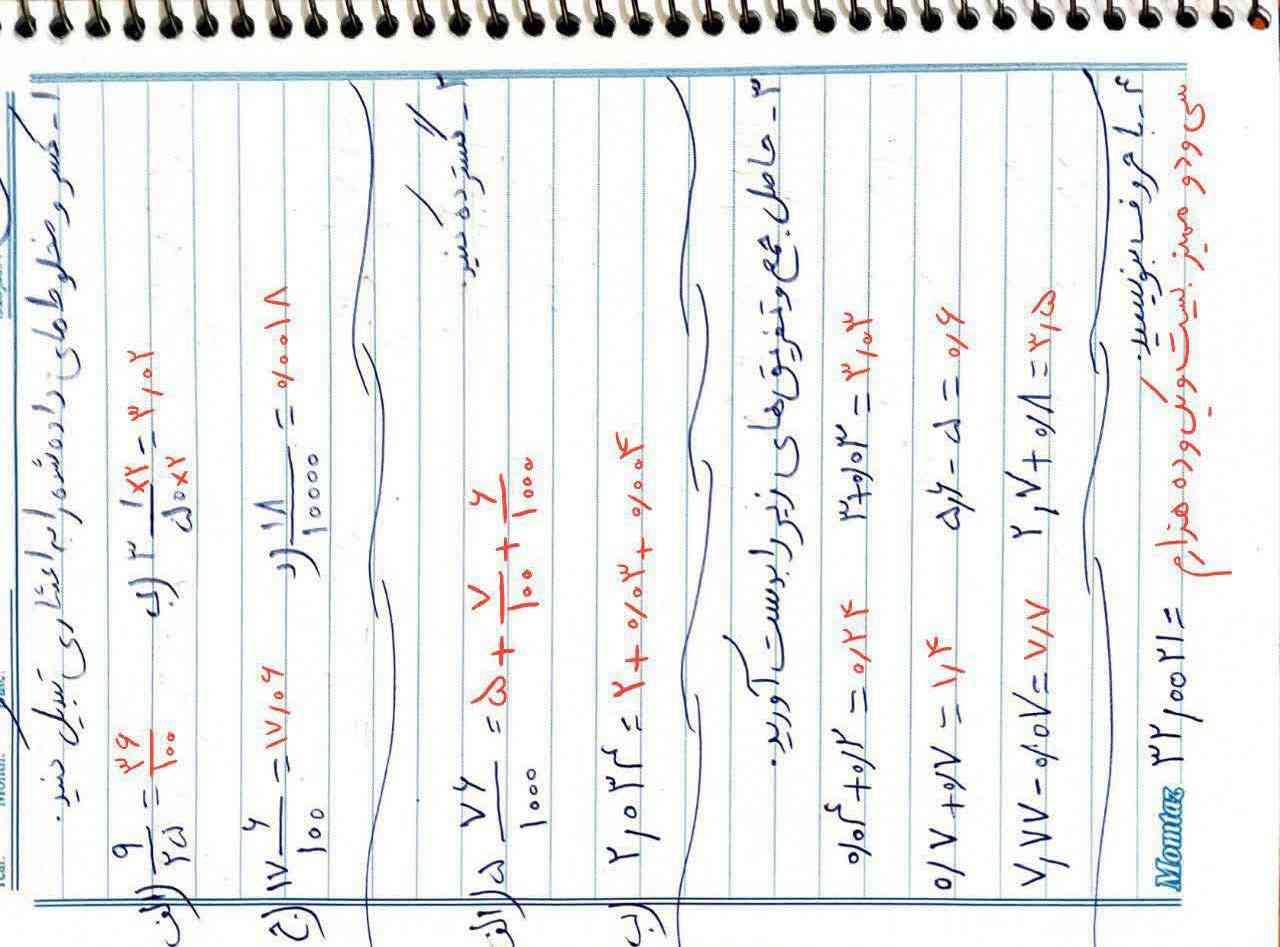 ۱- کسر و مخلوط های داده شده را به اعشاری تبدیل کنید.
الف) ۹/۲۵ = ۳۶/۱۰۰ ب) ۳ ۱×۲/۵۰×۲ = ۳,۰۲
ج) ۱۷ ۶/۱۰۰ = ۱۷,۰۶ د) ۱۸/۱۰۰۰۰ = ۰,۰۰۱۸
۲- گسترده کنید.
الف) ۵ ۷۶/۱۰۰۰ = ۵ + ۷/۱۰۰ + ۶/۱۰۰۰
ب) ۲,۰۳۴ = ۲ + ۰,۰۳ + ۰,۰۰۴
۳- حاصل جمع و تفریق های زیر را بدست آورید.
۰,۰۴ + ۰,۲ = ۰,۲۴ ۳+۰,۰۳ = ۳,۰۳
۰,۷ + ۰,۷ = ۱,۴ ۵,۶ - ۵ = ۰,۶
۷,۷۷ - ۰,۰۷ = ۷,۷ ۲,۷ + ۰,۸ = ۳,۵
۴- با حروف بنویسید.
۳۲,۰۰۲۱ = سی و دو ممیز بیست و یک ده هزارم
Momtaz